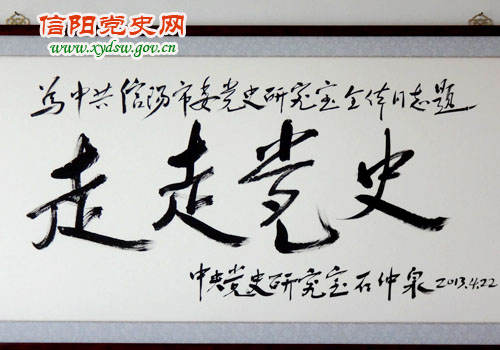 信阳党史网
www.xydsw.gov.cn
为中共信阳市委党史研究室全体同志题
走走党史
中央党史研究室石仲泉2013.4.22